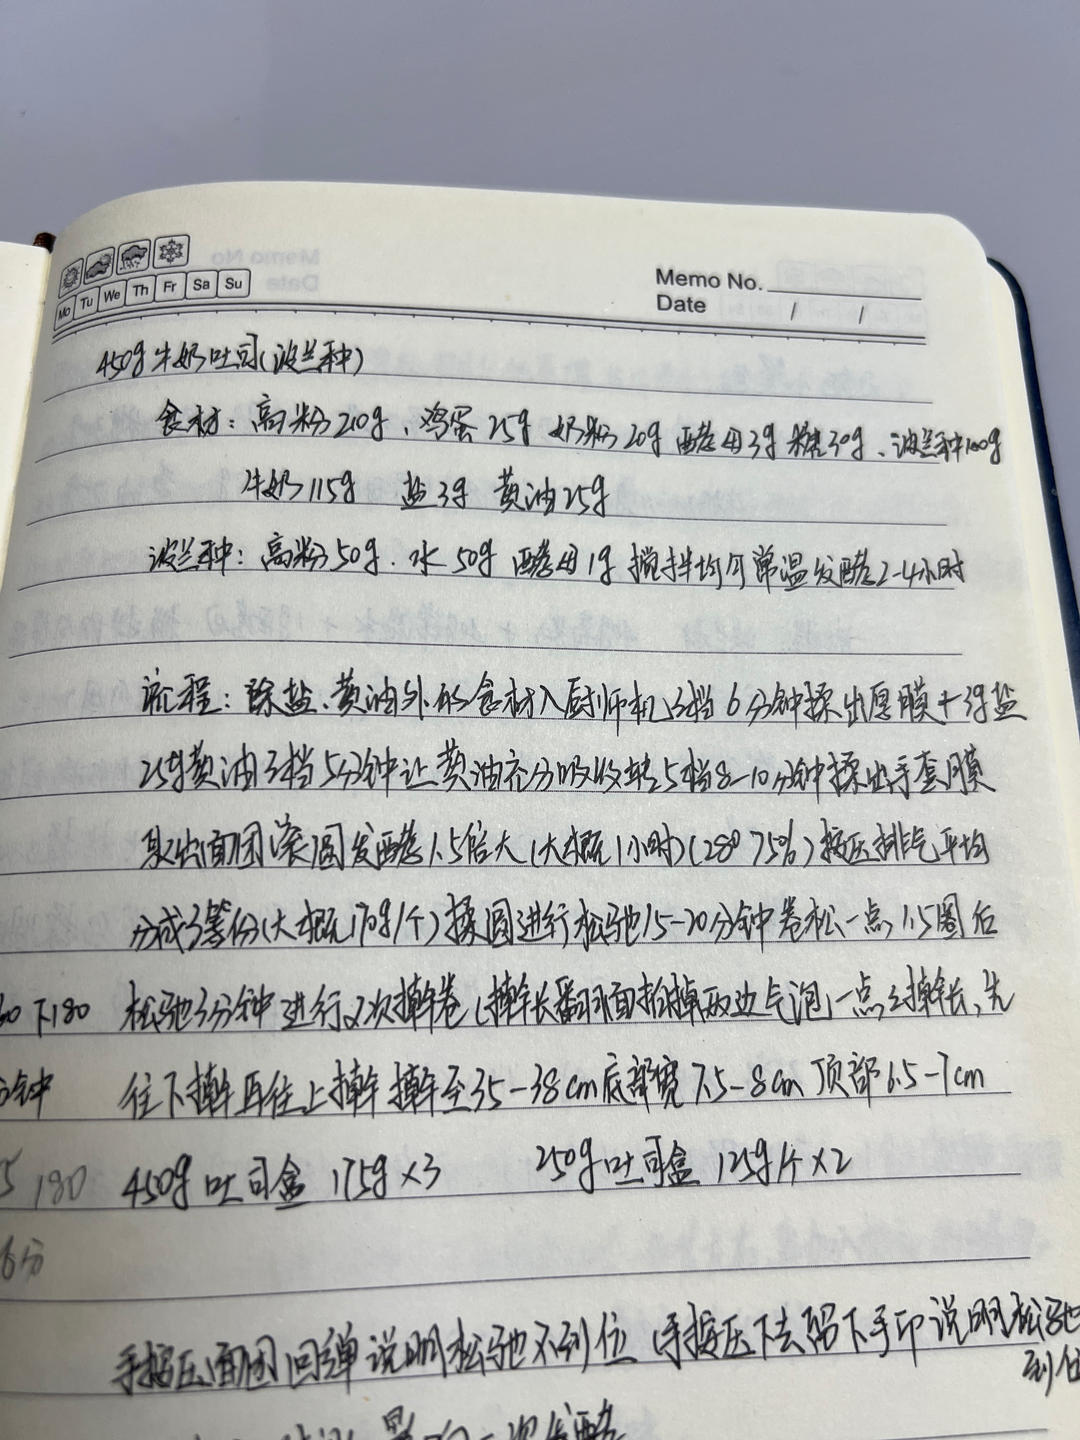 Mo Tu We Th Fr Sa Su
Memo No.
Date / /
450g牛奶吐司(波兰种)
食材：高粉210g、鸡蛋25g 奶粉20g 酵母3g 糖30g、波兰种100g
牛奶115g 盐3g 黄油25g
波兰种：高粉50g.水50g 酵母1g 搅拌均匀常温发酵2-4小时
流程：除盐、黄油外的食材入厨师机3档6分钟揉出厚膜+3g盐
25g黄油3档5分钟让黄油充分吸收转5档8-10分钟揉出手套膜
取出面团滚圆发酵1.5倍大(大概1小时)(28° 75%)按压排气平均
分成3等份(大概170g/个)揉圆进行松弛15-20分钟卷松一点1.5圈后
松弛3分钟进行2次擀卷(擀长翻面拍掉两边气泡)一点点擀长,先
往下擀再往上擀擀至35-38cm底部宽7.5-8cm顶部6.5-7cm
450g吐司盒 175g×3 250g吐司盒 125g/个×2
手按压面团回弹说明松弛不到位(手按压下去留下手印说明松弛
到位
下180
分钟
5 180
6分